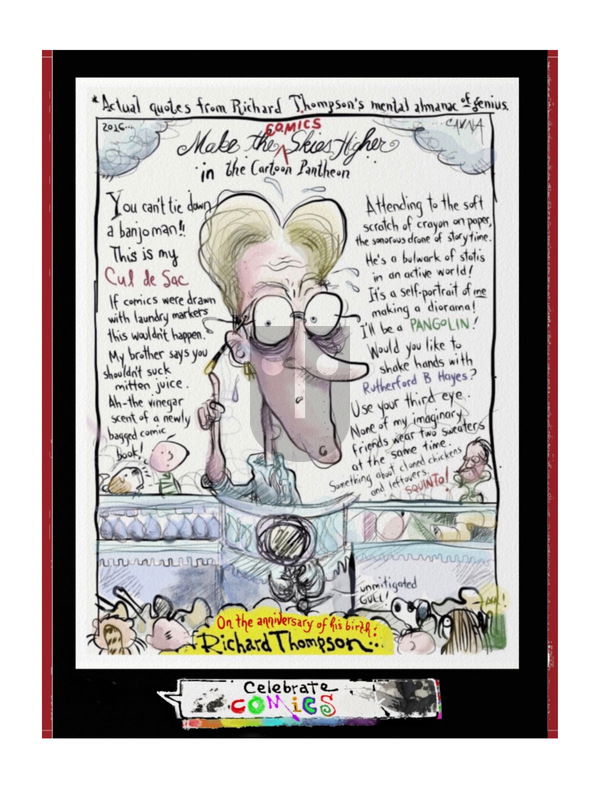 *Actual quotes from Richard Thompson's mental almanac of genius.
2016...
CAVNA
COMICS
Make the Skies Higher
in the Cartoon Pantheon
You can't tie down
a banjo man!!
This is my
Cul de Sac
If comics were drawn
with laundry markers
this wouldn't happen.
My brother says you
shouldn't suck
mitten juice.
Ah-the vinegar
scent of a newly
bagged comic
book!
Attending to the soft
scratch of crayon on paper,
the sonorous drone of storytime.
He's a bulwark of stasis
in an active world!
It's a self-portrait of me
making a diorama!
I'll be a PANGOLIN!
Would you like to
shake hands with
Rutherford B Hayes?
Use your third eye.
None of my imaginary
friends wear two sweaters
at the same time.
Something about cloned chickens
and leftovers.
SQUINTO!
unmitigated
GULL!
On the anniversary of his birth:
Richard Thompson:.
Celebrate
COMICS